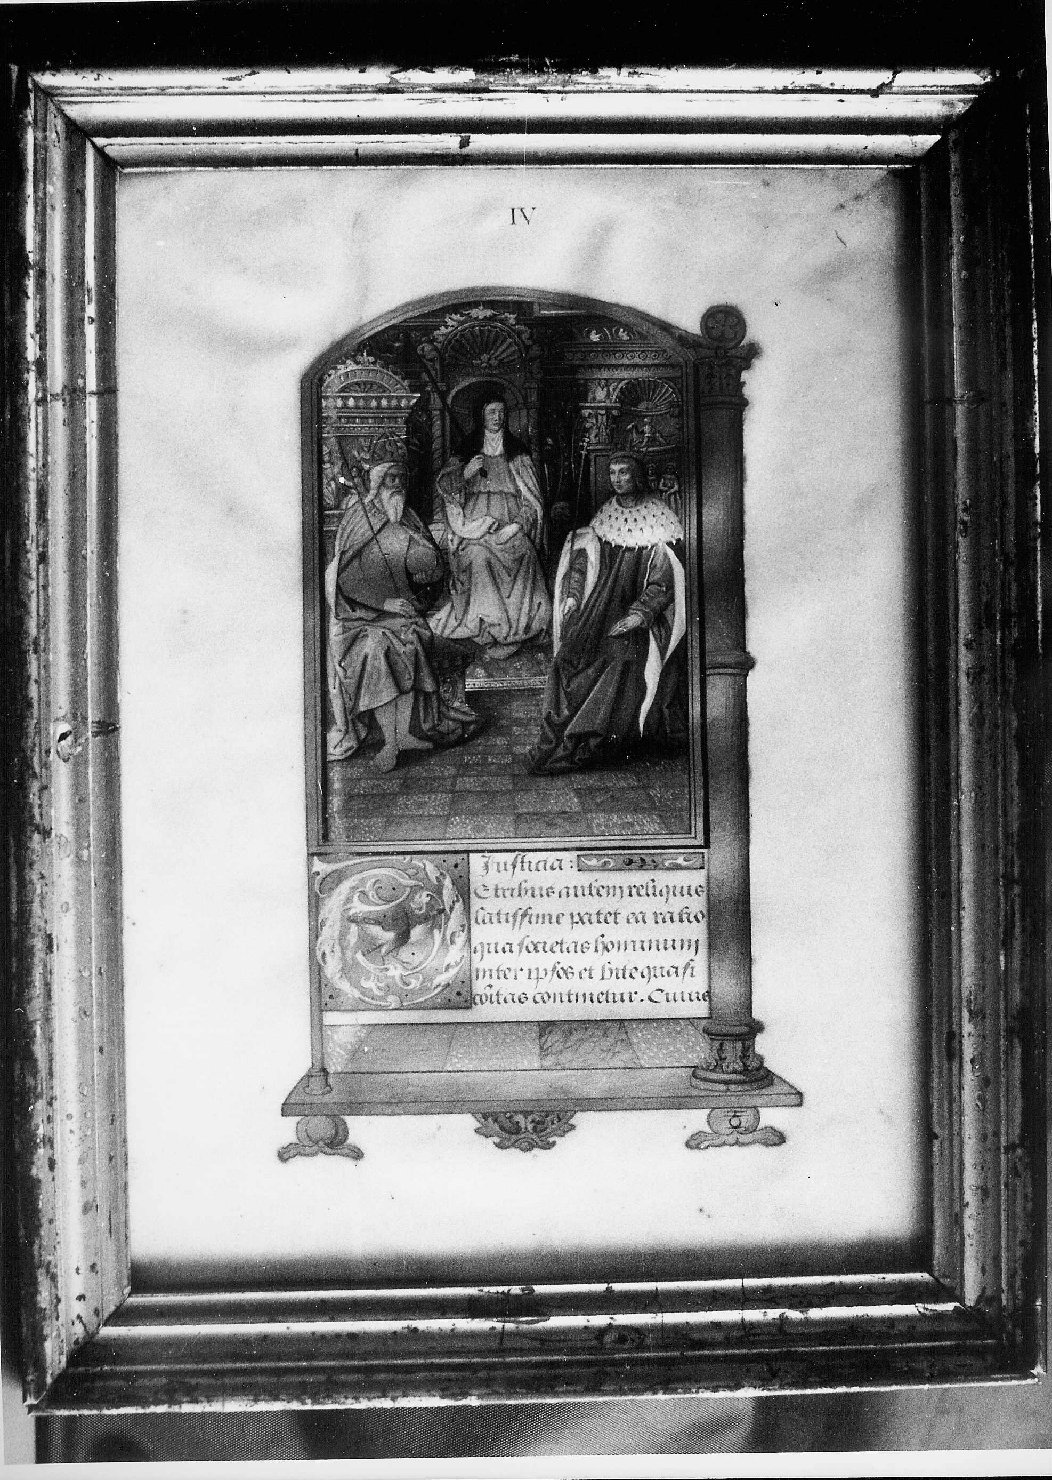 IV
Iusticia:
E tribus autem reliquis
latissime patet ea ratio
qua societas hominum
inter ipsos et vite quasi
cōitas continetur. Cuius